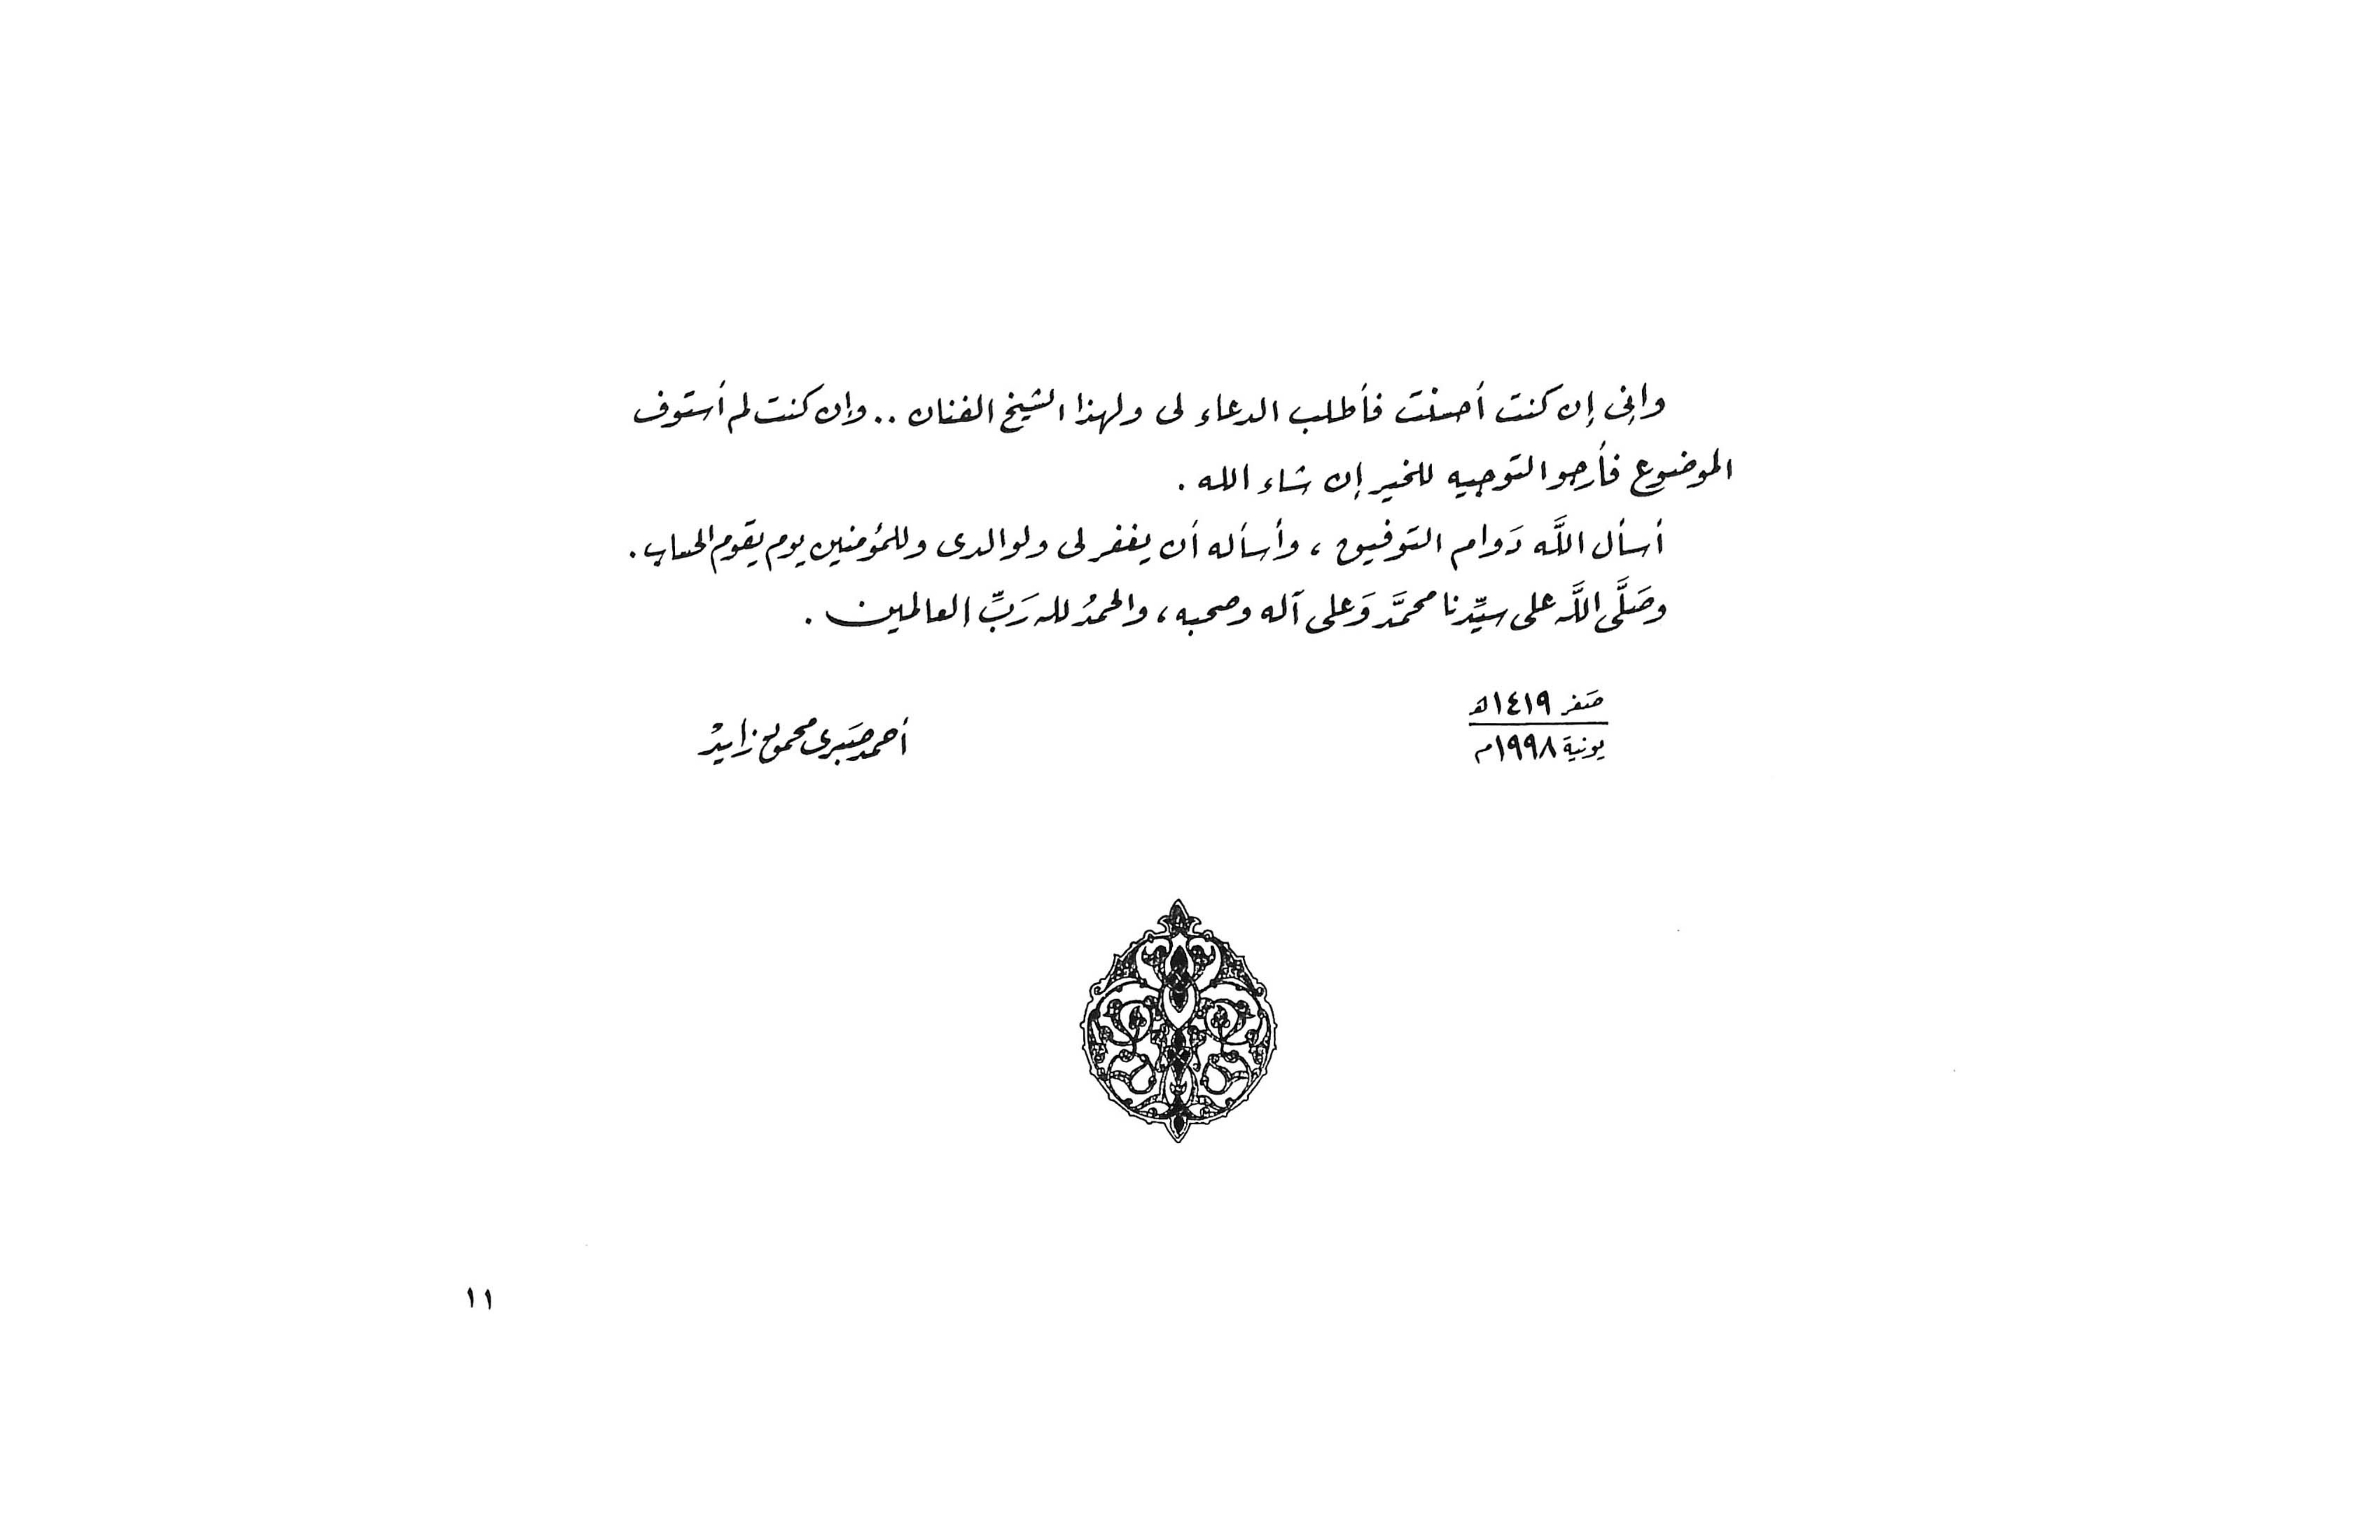 وإنى إن كنت أحسنت فأطلب الدعاء لى ولهذا الشيخ الفنان .. وإن كنت لم أستوف
الموضوع فأرجو التوجيه للخير إن شاء الله .
أسأل اللَّه دَوام التوفيق ، وأسأله أن يغفر لى ولوالدى وللمؤمنين يوم يقوم الحساب .
وصَلَّى اللَّه على سيِّدنا محمَّد وَعلى آله وصحبه ، والحمدُ لله رَبِّ العالمين .
صَفر ١٤١٩هـ
يونية ١٩٩٨م
أحمد صَبرى محمود زايد
١١